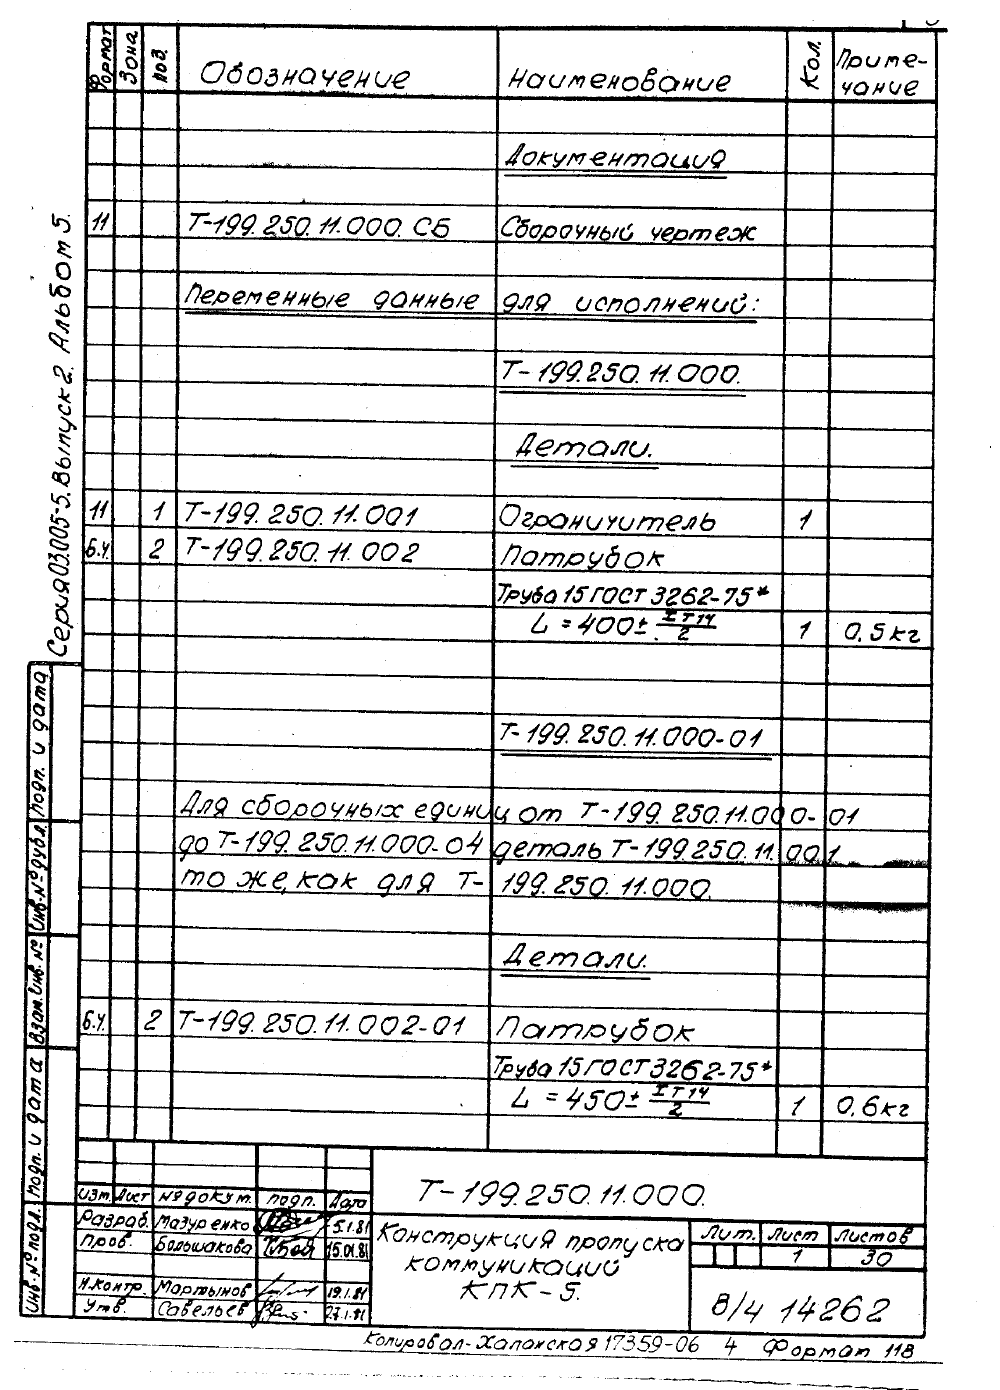 Формат Зона Поз. Обозначение Наименование Кол. Приме-
чание
Документация
11 Т-199.250.11.000.СБ Сборочный чертеж
Переменные данные для исполнений:
Т-199.250.11.000.
Детали.
11 1 Т-199.250.11.001 Ограничитель 1
Б.Ч. 2 Т-199.250.11.002 Патрубок
Труба 15 ГОСТ 3262-75*
L = 400± IT14/2 1 0,5кг
Т-199.250.11.000-01
Для сборочных единиц от Т-199.250.11.000-01
до Т-199.250.11.000-04 деталь Т-199.250.11.001
то же, как для Т-199.250.11.000.
Детали.
Б.Ч. 2 Т-199.250.11.002-01 Патрубок
Труба 15 ГОСТ 3262-75*
L = 450± IT14/2 1 0,6кг
Серия 03.005-5. Выпуск 2. Альбом 5.
Подп. и дата
Инв. № дубл.
Взам. инв. №
Подп. и дата
Инв. № подл.
Изм. Лист № докум. подп. Дата
Разраб. Мазуренко 5.1.81
Пров. Большакова 15.01.81
Н.контр. Мартынов 19.1.81
Утв. Савельев 27.1.81
Т-199.250.11.000.
Конструкция пропуска
коммуникаций
КПК-5.
Лит. Лист Листов
1 30
8/4 14262
Копировал-Халанская 17359-06 4 Формат 11В